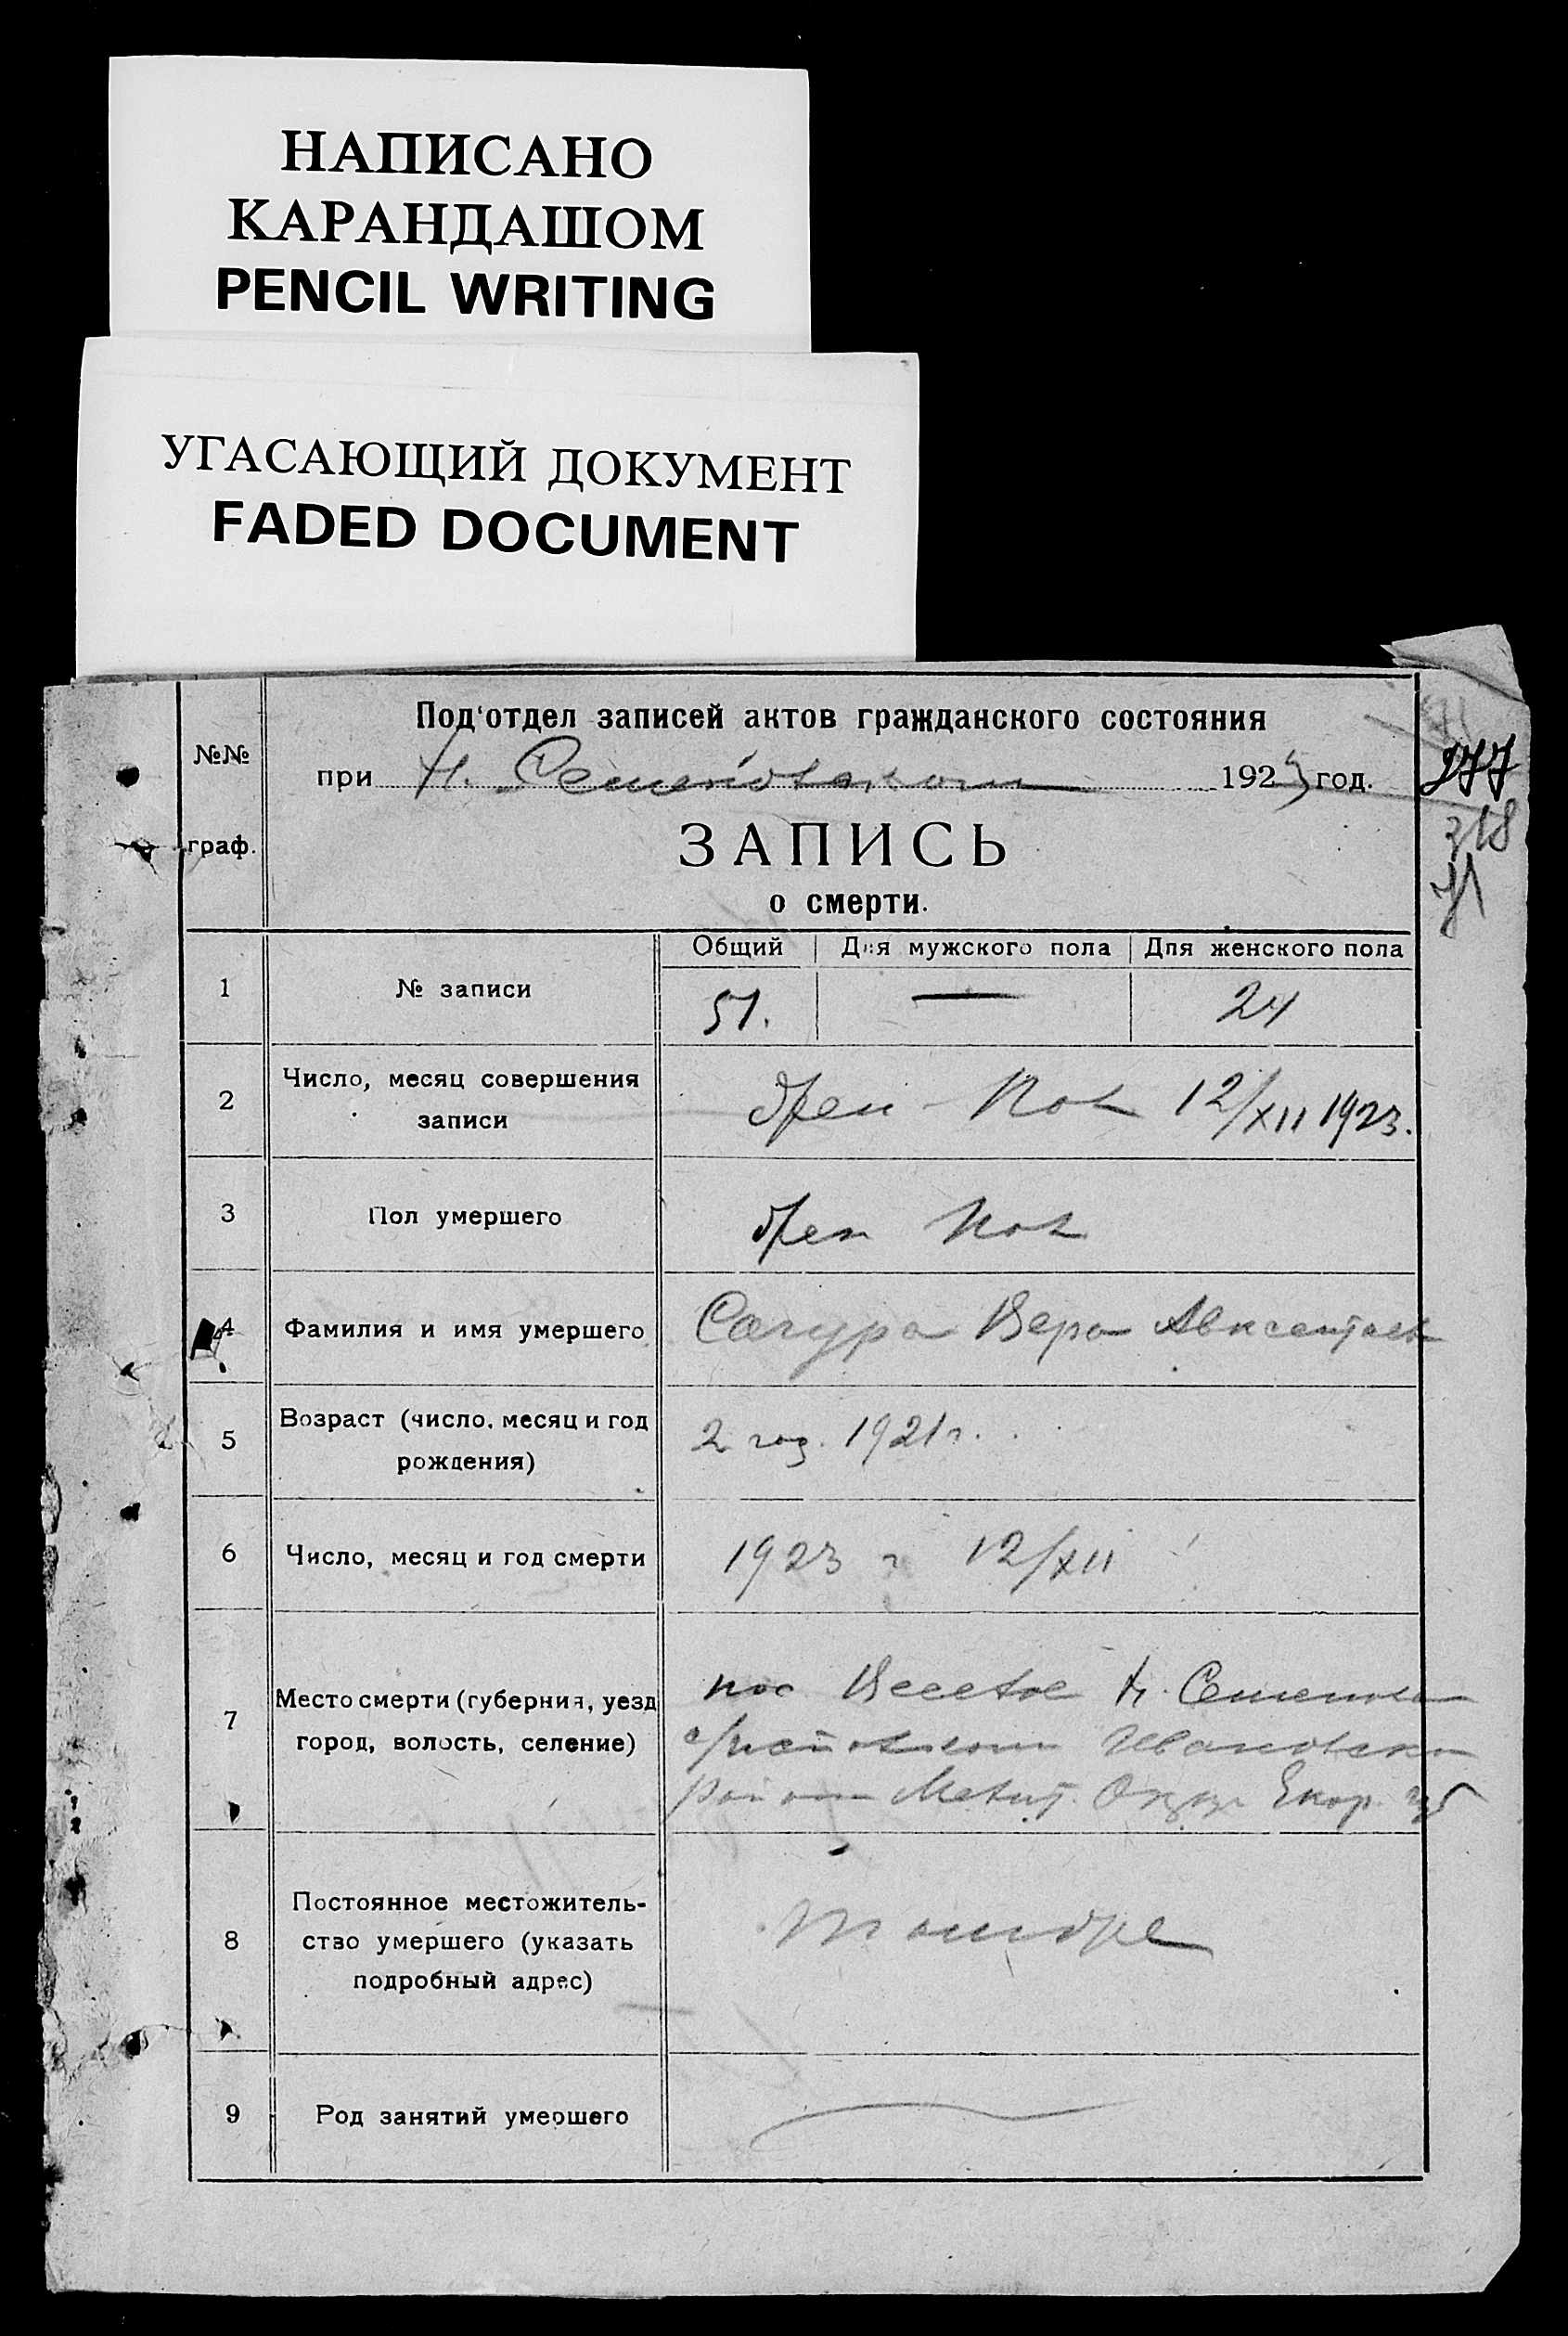 НАПИСАНО
КАРАНДАШОМ
PENCIL WRITING
УГАСАЮЩИЙ ДОКУМЕНТ
FADED DOCUMENT
№№
граф.
Под'отдел записей актов гражданского состояния
при Н. Семеновском 1923 год.
277
318
ЗАПИСЬ
о смерти.
Общий Для мужского пола Для женского пола
1 № записи 51. — 24
2 Число, месяц совершения
записи
жен пол 12/XII 1923.
3 Пол умершего жен пол
4 Фамилия и имя умершего Сагура Вера Авксентьев
5 Возраст (число, месяц и год
рождения)
2 год. 1921 г.
6 Число, месяц и год смерти 1923 г 12/XII
7 Место смерти (губерния, уезд
город, волость, селение)
пос Веселое Н. Семенов
Ивановско
район Мелит. Окр Екар. губ
8 Постоянное местожитель-
ство умершего (указать
подробный адрес)
Там же
9 Род занятий умершего